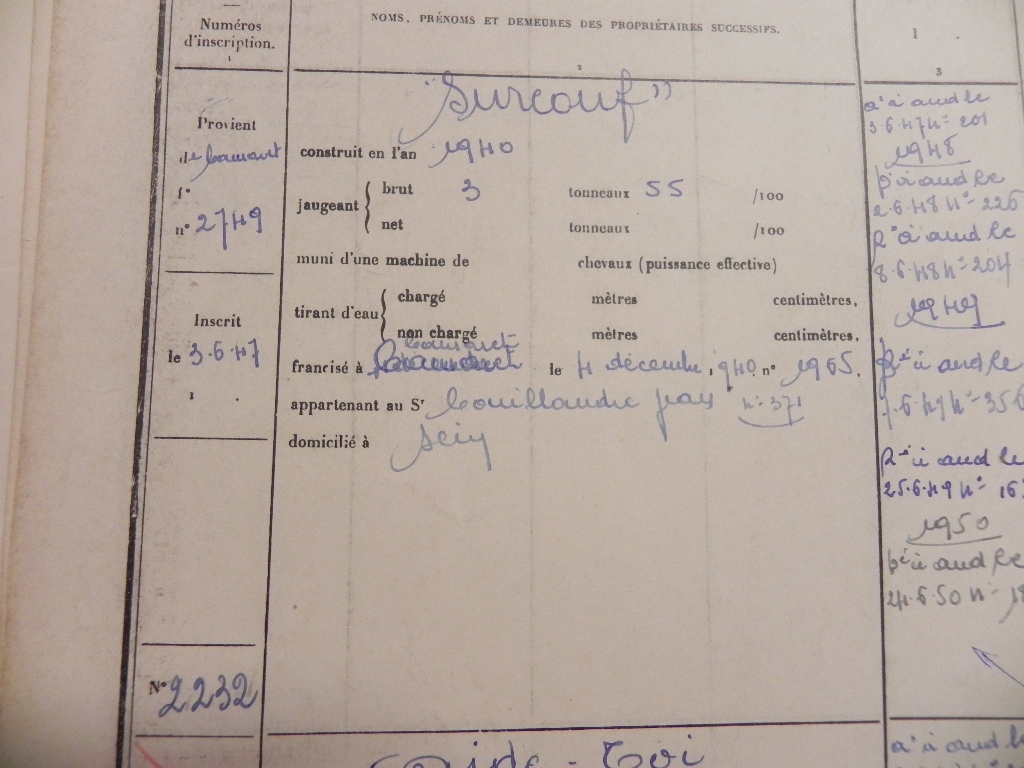 Numéros
d'inscription.
1
Provient
de Camaret
f°
n° 2749
Inscrit
le 3.6.47
N° 2232
NOMS, PRÉNOMS ET DEMEURES DES PROPRIÉTAIRES SUCCESSIFS.
2
"Surcouf"
construit en l'an 1940
jaugeant { brut 3 tonneaux 55 /100
net tonneaux /100
muni d'une machine de chevaux (puissance effective)
tirant d'eau { chargé mètres centimètres,
non chargé mètres centimètres,
Camaret
francisé à le 4 décembre 1940 n° 1965,
appartenant au Sr Couillandre n° 371
domicilié à Sein
Aide-Toi
1
3
a' à aud le
3.6.47 n° 201
1948
à aud le
2.6.48 n° 226
à aud le
8.6.48 n° 204
1949
à aud le
n° 356
à aud le
25.6.49 n°
1950
à aud le
24.6.50 n°
a' à aud le